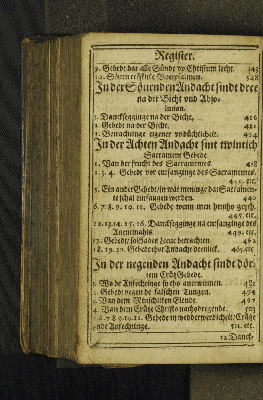 Register.
9. Gebedt dat alle Sünde vp Christum licht. 343
10. Söven tröstlike Boetpsalmen. 348
In der Söuenden Andacht sindt dree
na der Bicht vnd Abso-
lution.
1. Dancksegginge na der Bicht, 416
2. Gebedt na der Bicht, 421
3. Betrachtinge egener vndüchticheit. 424
In der Achten Andacht sint twintich
Sacrament Gebede.
1. Van der frucht des Sacramentes. 428
2. 3. 4. Gebedt vor entfanginge des Sacramentes.
432. etc.
5. Ein ander Gebedt, in wat meninge dat Sacramen-
te schal entfangen werden. 440
6. 7. 8. 9. 10. 11. Gebedt wenn men hentho geyth.
445. etc.
12. 13. 14. 15. 16. Dancksegginge na entfanginge des
Auentmahls 449. etc.
17. Gebedt 462
18. 19. 20. Gebedt 465. etc.
In der negenden Andacht sindt dör-
tein Crütz Gebede.
1. Wo de Anfechtinge tho annemen. 482
2. Gebedt 494
3. Van dem Minschliken Elende. 497
4. Van dem Crütze Christi 503
5. 6. 7. 8. 9. 10. 11. Gebede in wedderwerdicheit / Crütze
vnd Anfechtinge. 511. etc.
12. Danck-